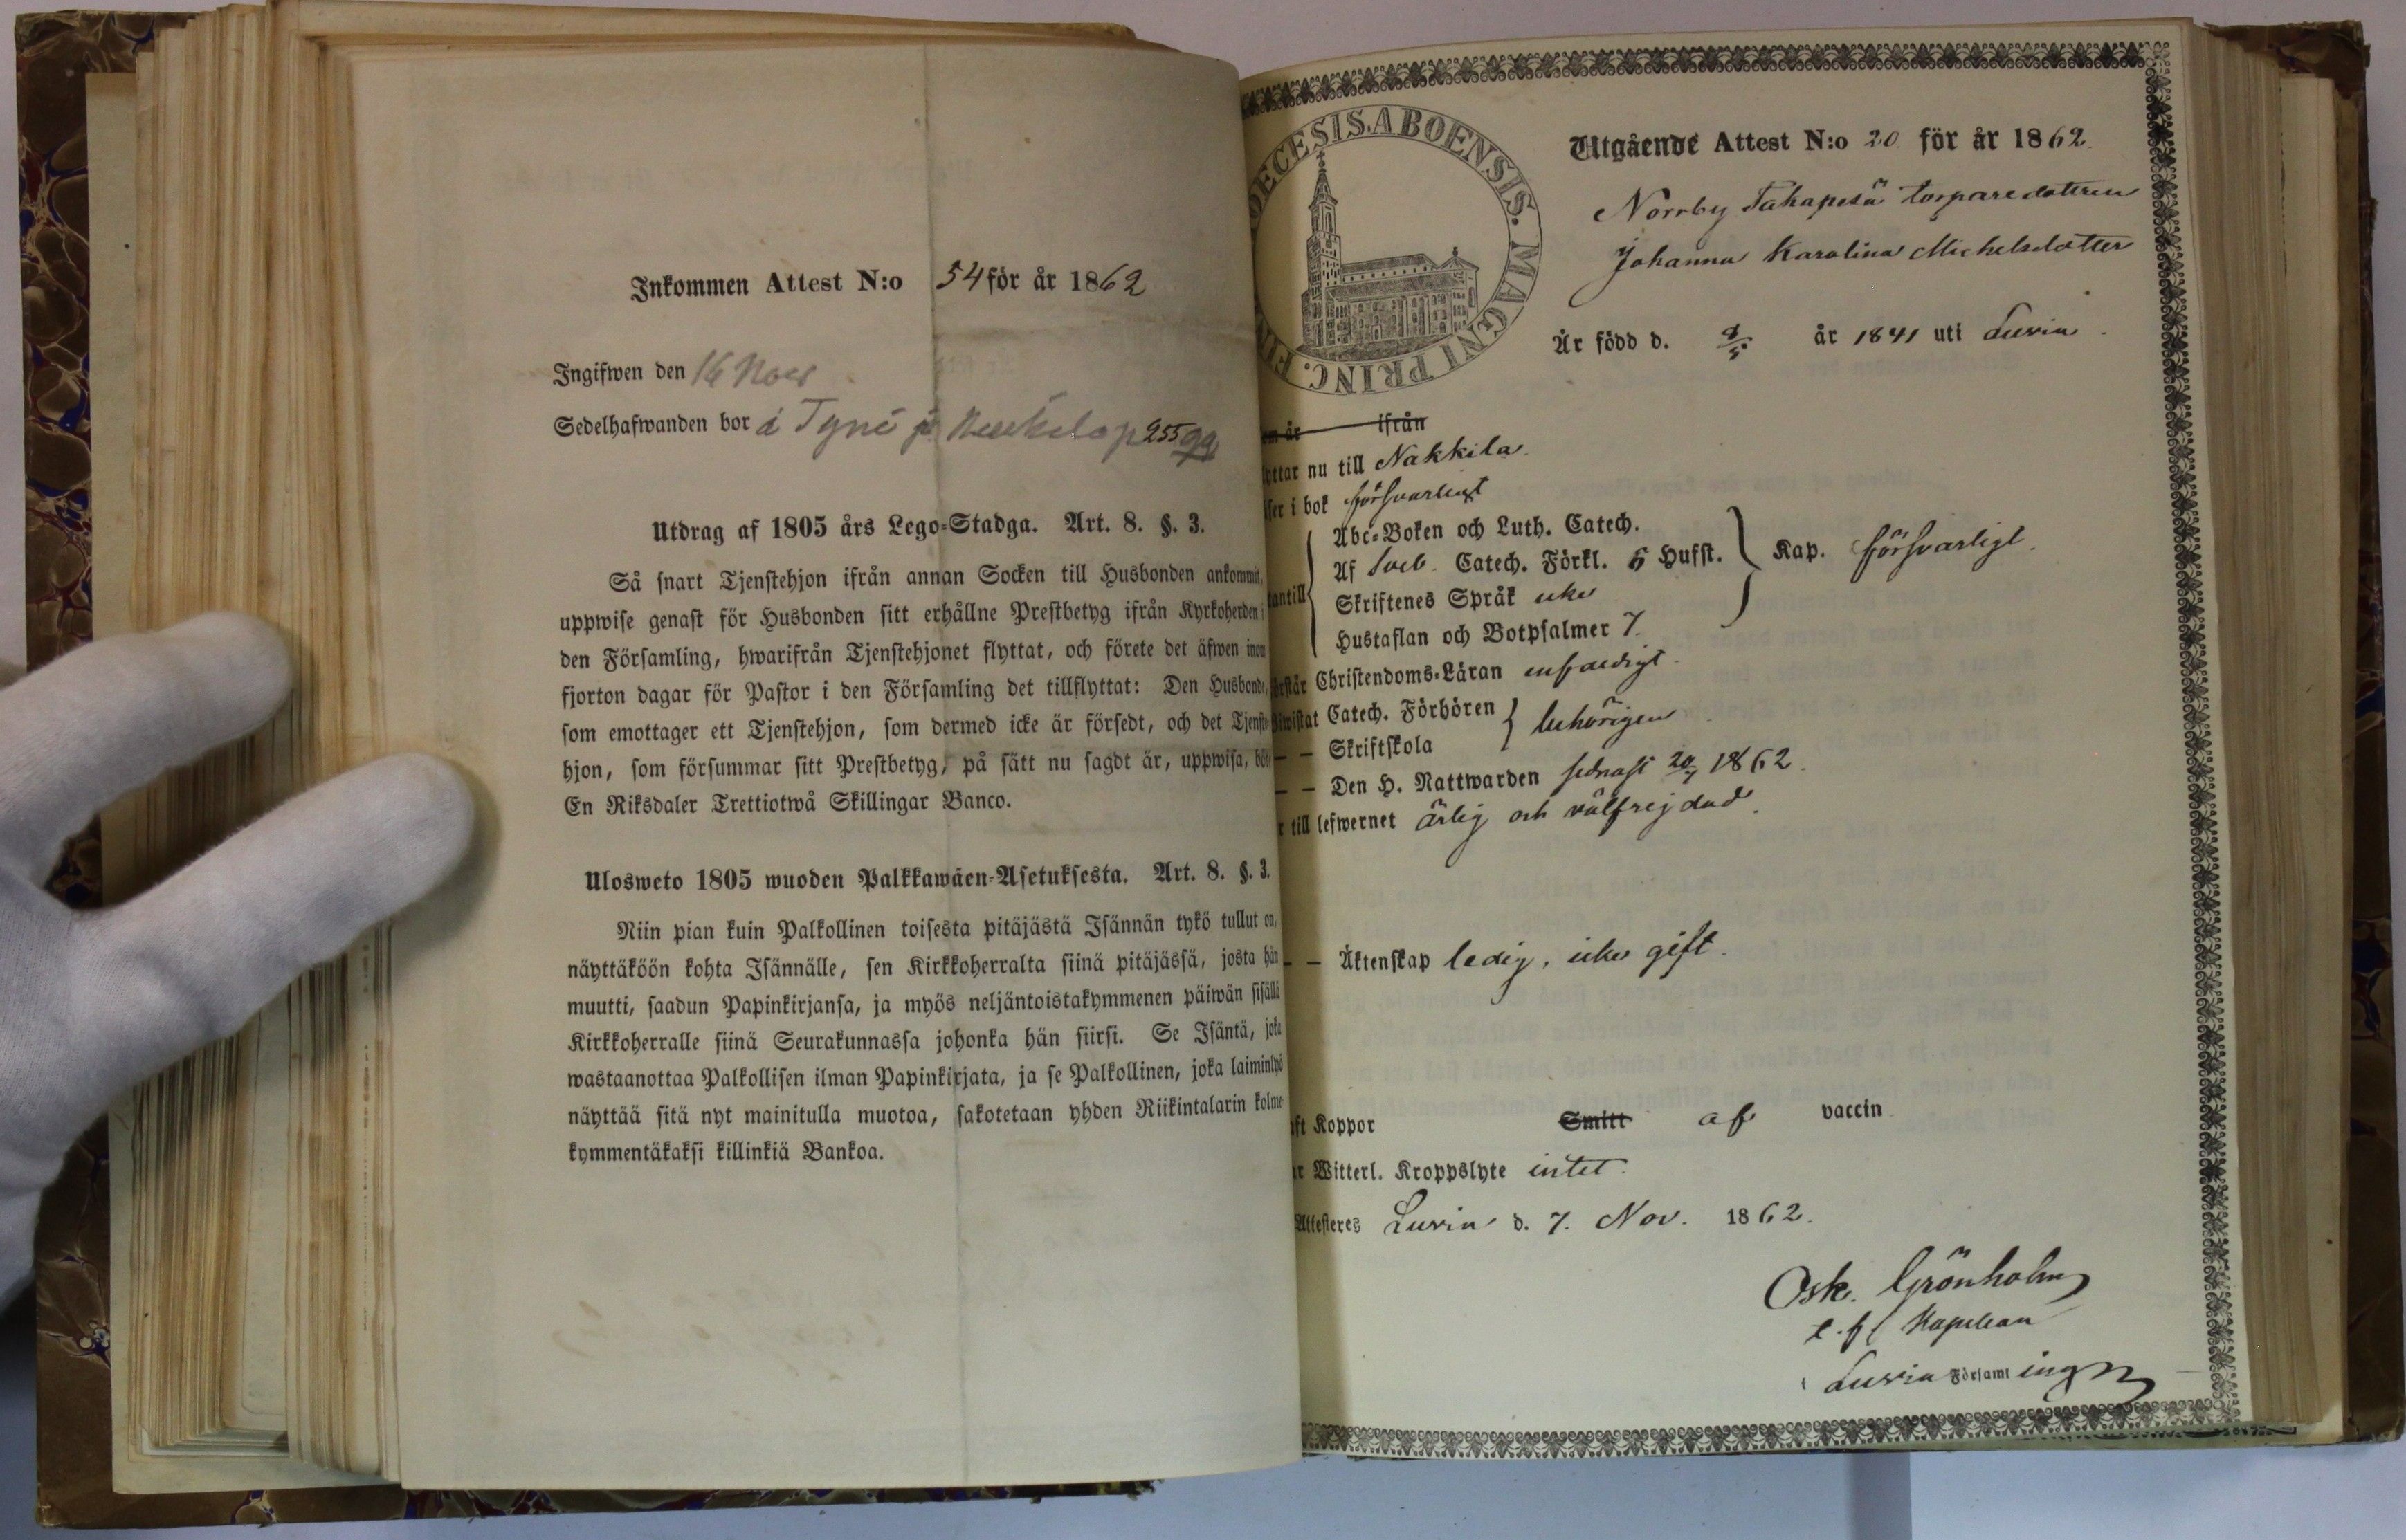 Inkommen Attest N:o 54 för år 1862
Ingifwen den 16 Nov
Sedelhafwanden bor å Tyni 255
Utdrag af 1805 års Lego-Stadga. Art. 8. §. 3.
Så snart Tjenstehjon ifrån annan Socken till Husbonden ankommit,
uppwise genast för Husbonden sitt erhållne Prestbetyg ifrån Kyrkoherden i
den Församling, hwarifrån Tjenstehjonet flyttat, och förete det äfwen inom
fjorton dagar för Pastor i den Församling det tillflyttat: Den Husbonde,
som emottager ett Tjenstehjon, som dermed icke är försedt, och det Tjenste
hjon, som försummar sitt Prestbetyg, på sätt nu sagdt är, uppwisa, böte
En Riksdaler Trettiotwå Skillingar Banco.
Ulosweto 1805 wuoden Palkkawäen-Asetuksesta. Art. 8. §. 3.
Niin pian kuin Palkollinen toisesta pitäjästä Isännän tykö tullut on,
näyttäköön kohta Isännälle, sen Kirkkoherralta siinä pitäjässä, josta hän
muutti, saadun Papinkirjansa, ja myös neljäntoistakymmenen päiwän sisällä
Kirkkoherralle siinä Seurakunnassa johonka hän siirsi. Se Isäntä, joka
wastaanottaa Palkollisen ilman Papinkirjata, ja se Palkollinen, joka laiminlyö
näyttää sitä nyt mainitulla muotoa, sakotetaan yhden Riikintalarin kolme-
kymmentäkaksi killinkiä Bankoa.
OECESIS.ABOENSIS. MAGNI PRINC. FIN
Utgående Attest N:o 20 för år 1862.
Norrby Tahapesä torparedottren
Johanna Karolina Michelsdotter
Är född d. år 1841 uti Luvia.
om är ifrån
yttar nu till Nakkila.
ser i bok försvarligt
antill
Abc-Boken och Luth. Catech.
Af Sveb. Catech. Förkl. 6 Hufst.
Skriftenes Språk icke
Hustaflan och Botpsalmer 7.
Kap. försvarligt.
rstår Christendoms-Läran enfaldigt.
iwistat Catech. Förhören
— — Skriftskola
behörigen
— — Den H. Nattwarden sednast 20/7 1862.
r till lefwernet ärlig och välfrejdad.
— — Äktenskap ledig, icke gift.
aft Koppor Smitt af vaccin
ar Witterl. Kroppslyte intet.
Attesteres Luvia d. 7. Nov. 1862.
Osk. Grönholm
t.f. Kapellan
Luvia Församl ing